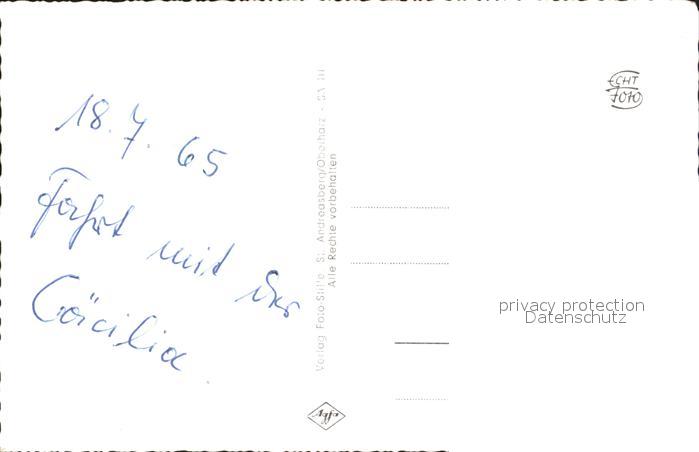 18.7.65
Fahrt mit der
Cäcilia
Verlag Foto-Stille St. Andreasberg/Oberharz
Alle Rechte vorbehalten
ECHT
FOTO
privacy protection
Datenschutz
Agfa